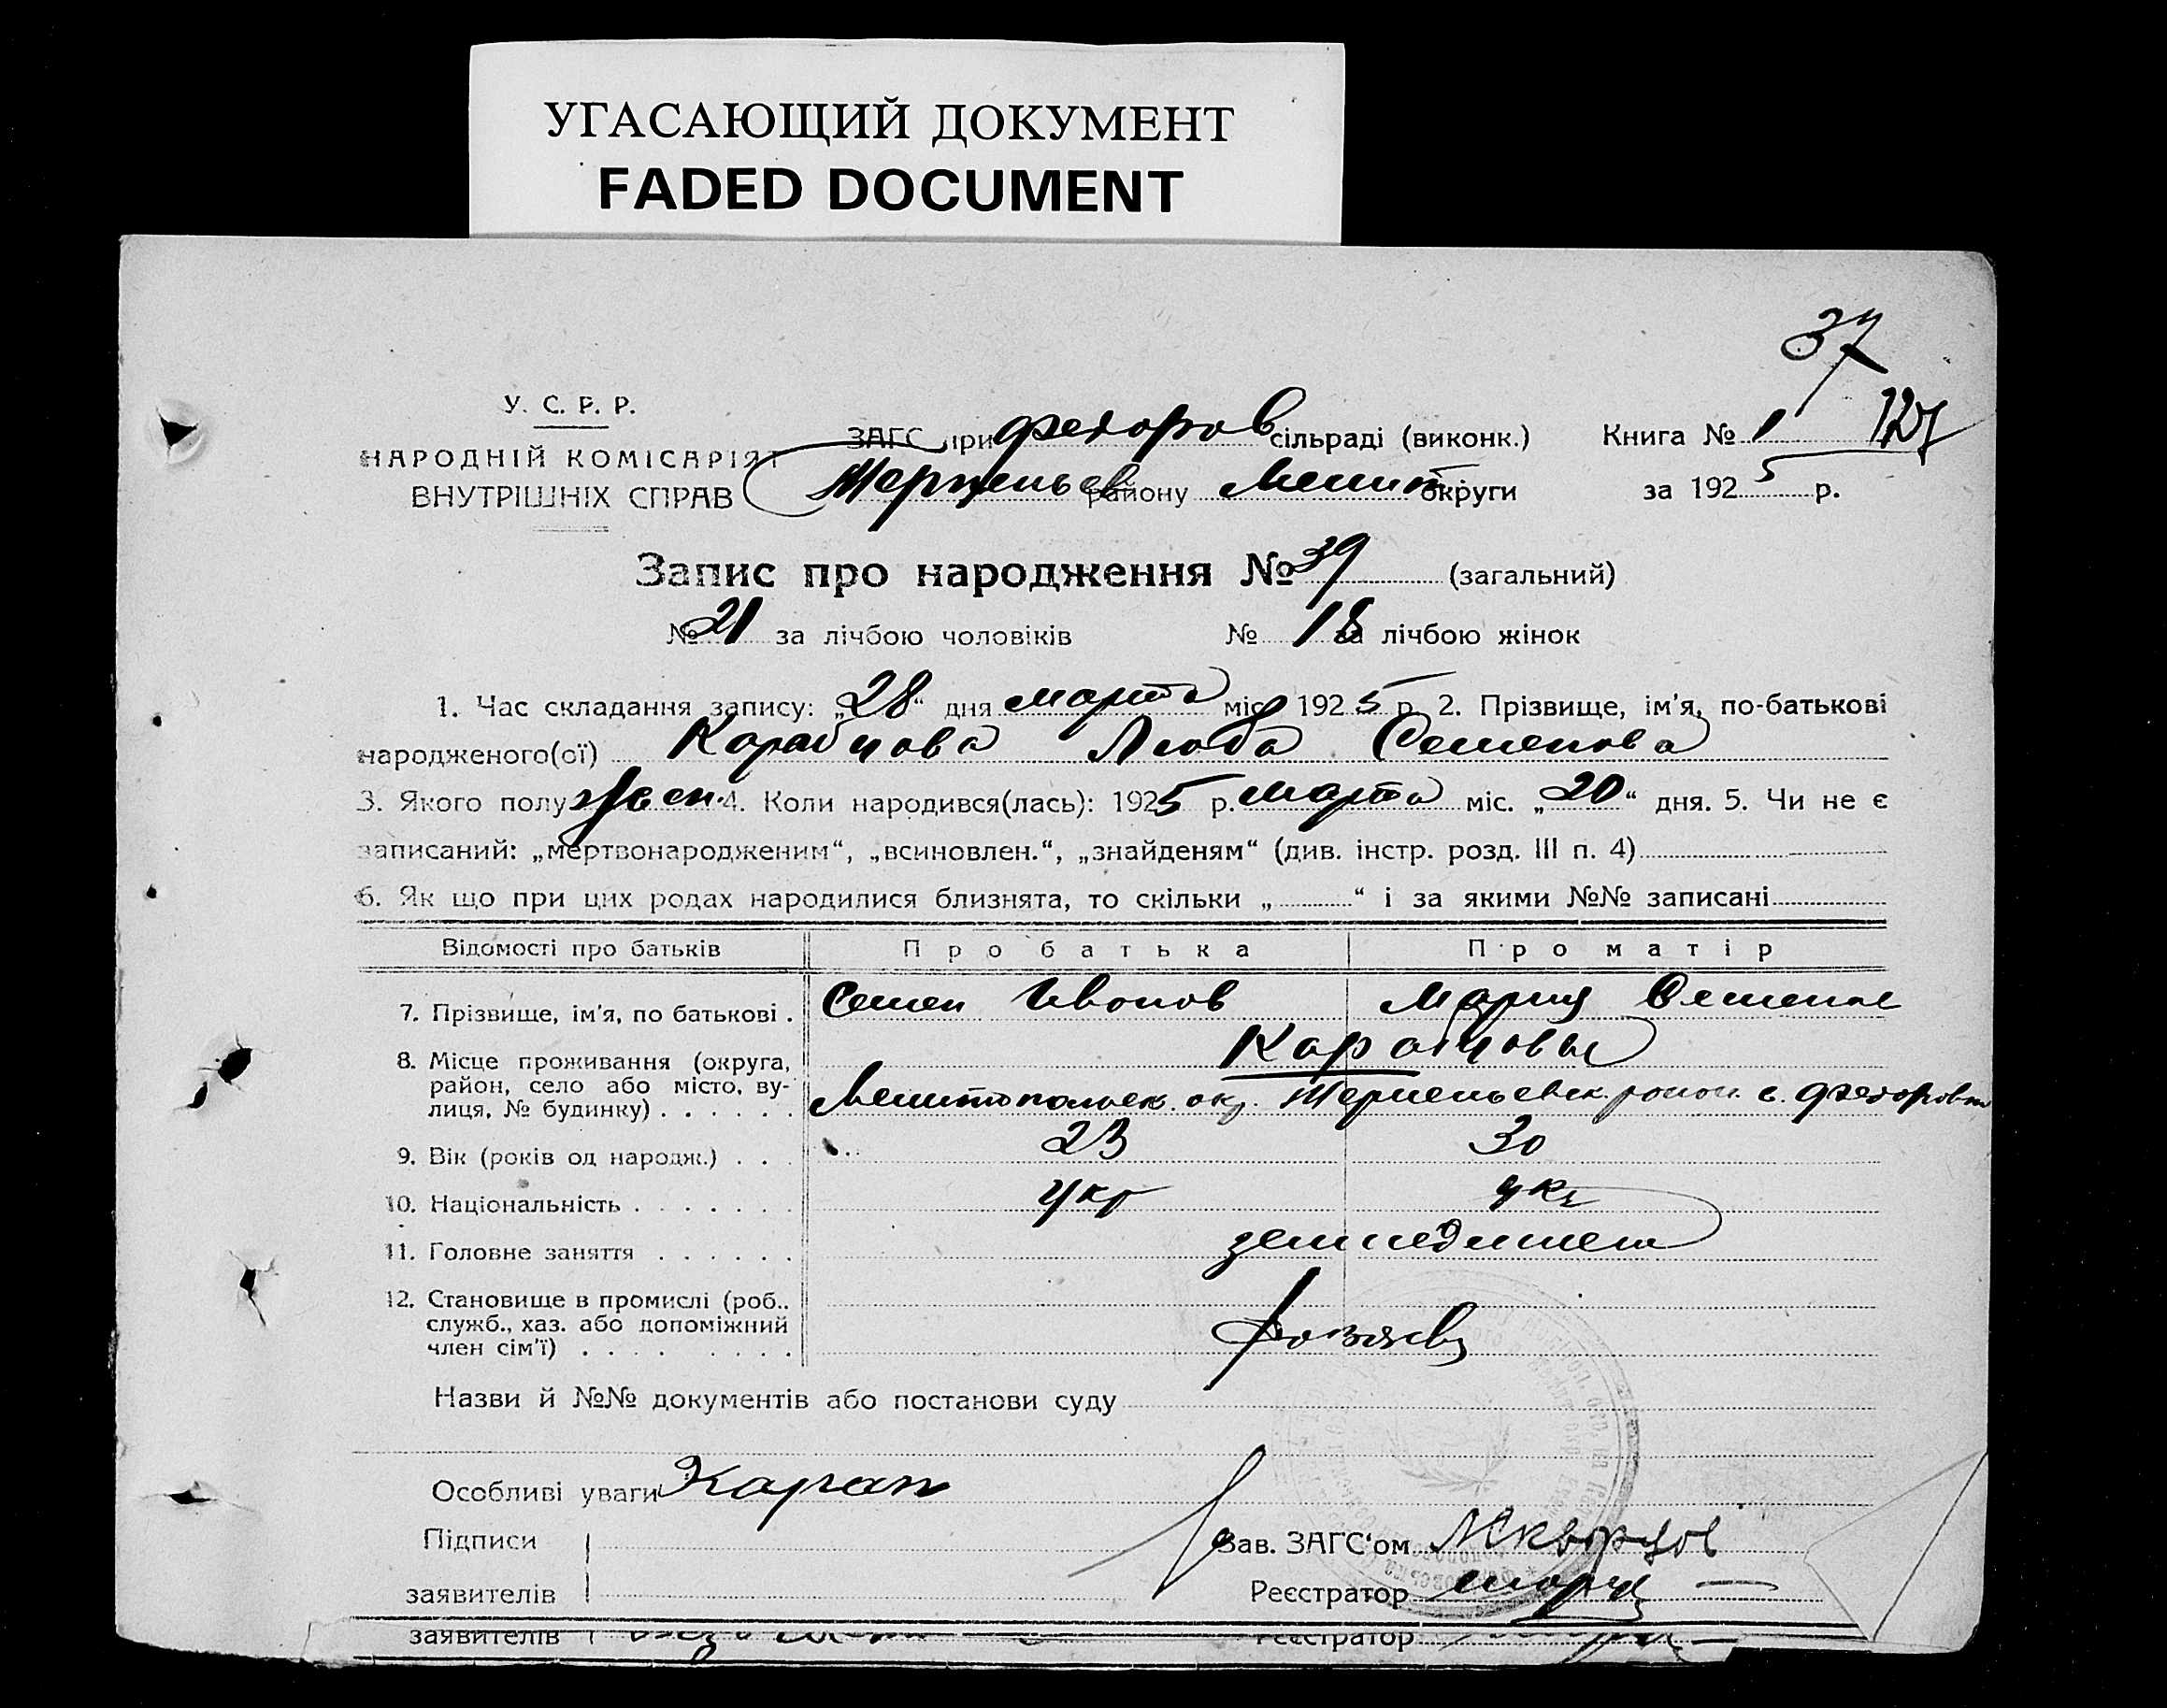 УГАСАЮЩИЙ ДОКУМЕНТ
FADED DOCUMENT
37
У. С. Р. Р.
НАРОДНІЙ КОМІСАРІЯТ
ВНУТРІШНІХ СПРАВ
ЗАГС при Федоров сільраді (виконк.) Книга № 1
Терпеньев району Мелит округи за 1925 р.
Запис про народження № 39 (загальний)
№ 21 за лічбою чоловіків № 18 за лічбою жінок
1. Час складання запису: „28“ дня марта міс. 1925 р. 2. Прізвище, ім'я, по-батькові
народженого(ої) Карабчова Люба Семенова
3. Якого полу жен. 4. Коли народився(лась): 1925 р. марта міс. „20“ дня. 5. Чи не є
записаний: „мертвонародженим“, „всиновлен.“, „знайденям“ (див. інстр. розд. III п. 4)
6. Як що при цих родах народилися близнята, то скільки „ “ і за якими №№ записані
Відомості про батьків Про батька Про матір
7. Прізвище, ім'я, по батькові . Семен Иванов Мария Семенов
8. Місце проживання (округа,
район, село або місто, ву-
лиця, № будинку) . . . . . . Мелитопольск. окр. Терпеньевск. район. с. Федоровка
9. Вік (років од народж.) . . . 23 30
10. Національність . . . . . . . укр укр
11. Головне заняття . . . . . . земледелием
12. Становище в промислі (роб..
служб., хаз. або допоміжний
член сім'ї) . . . . . . . . .
Назви й №№ документів або постанови суду
Особливі уваги
Підписи
заявителів
Зав. ЗАГС'ом
Реєстратор
заявителів Реєстратор